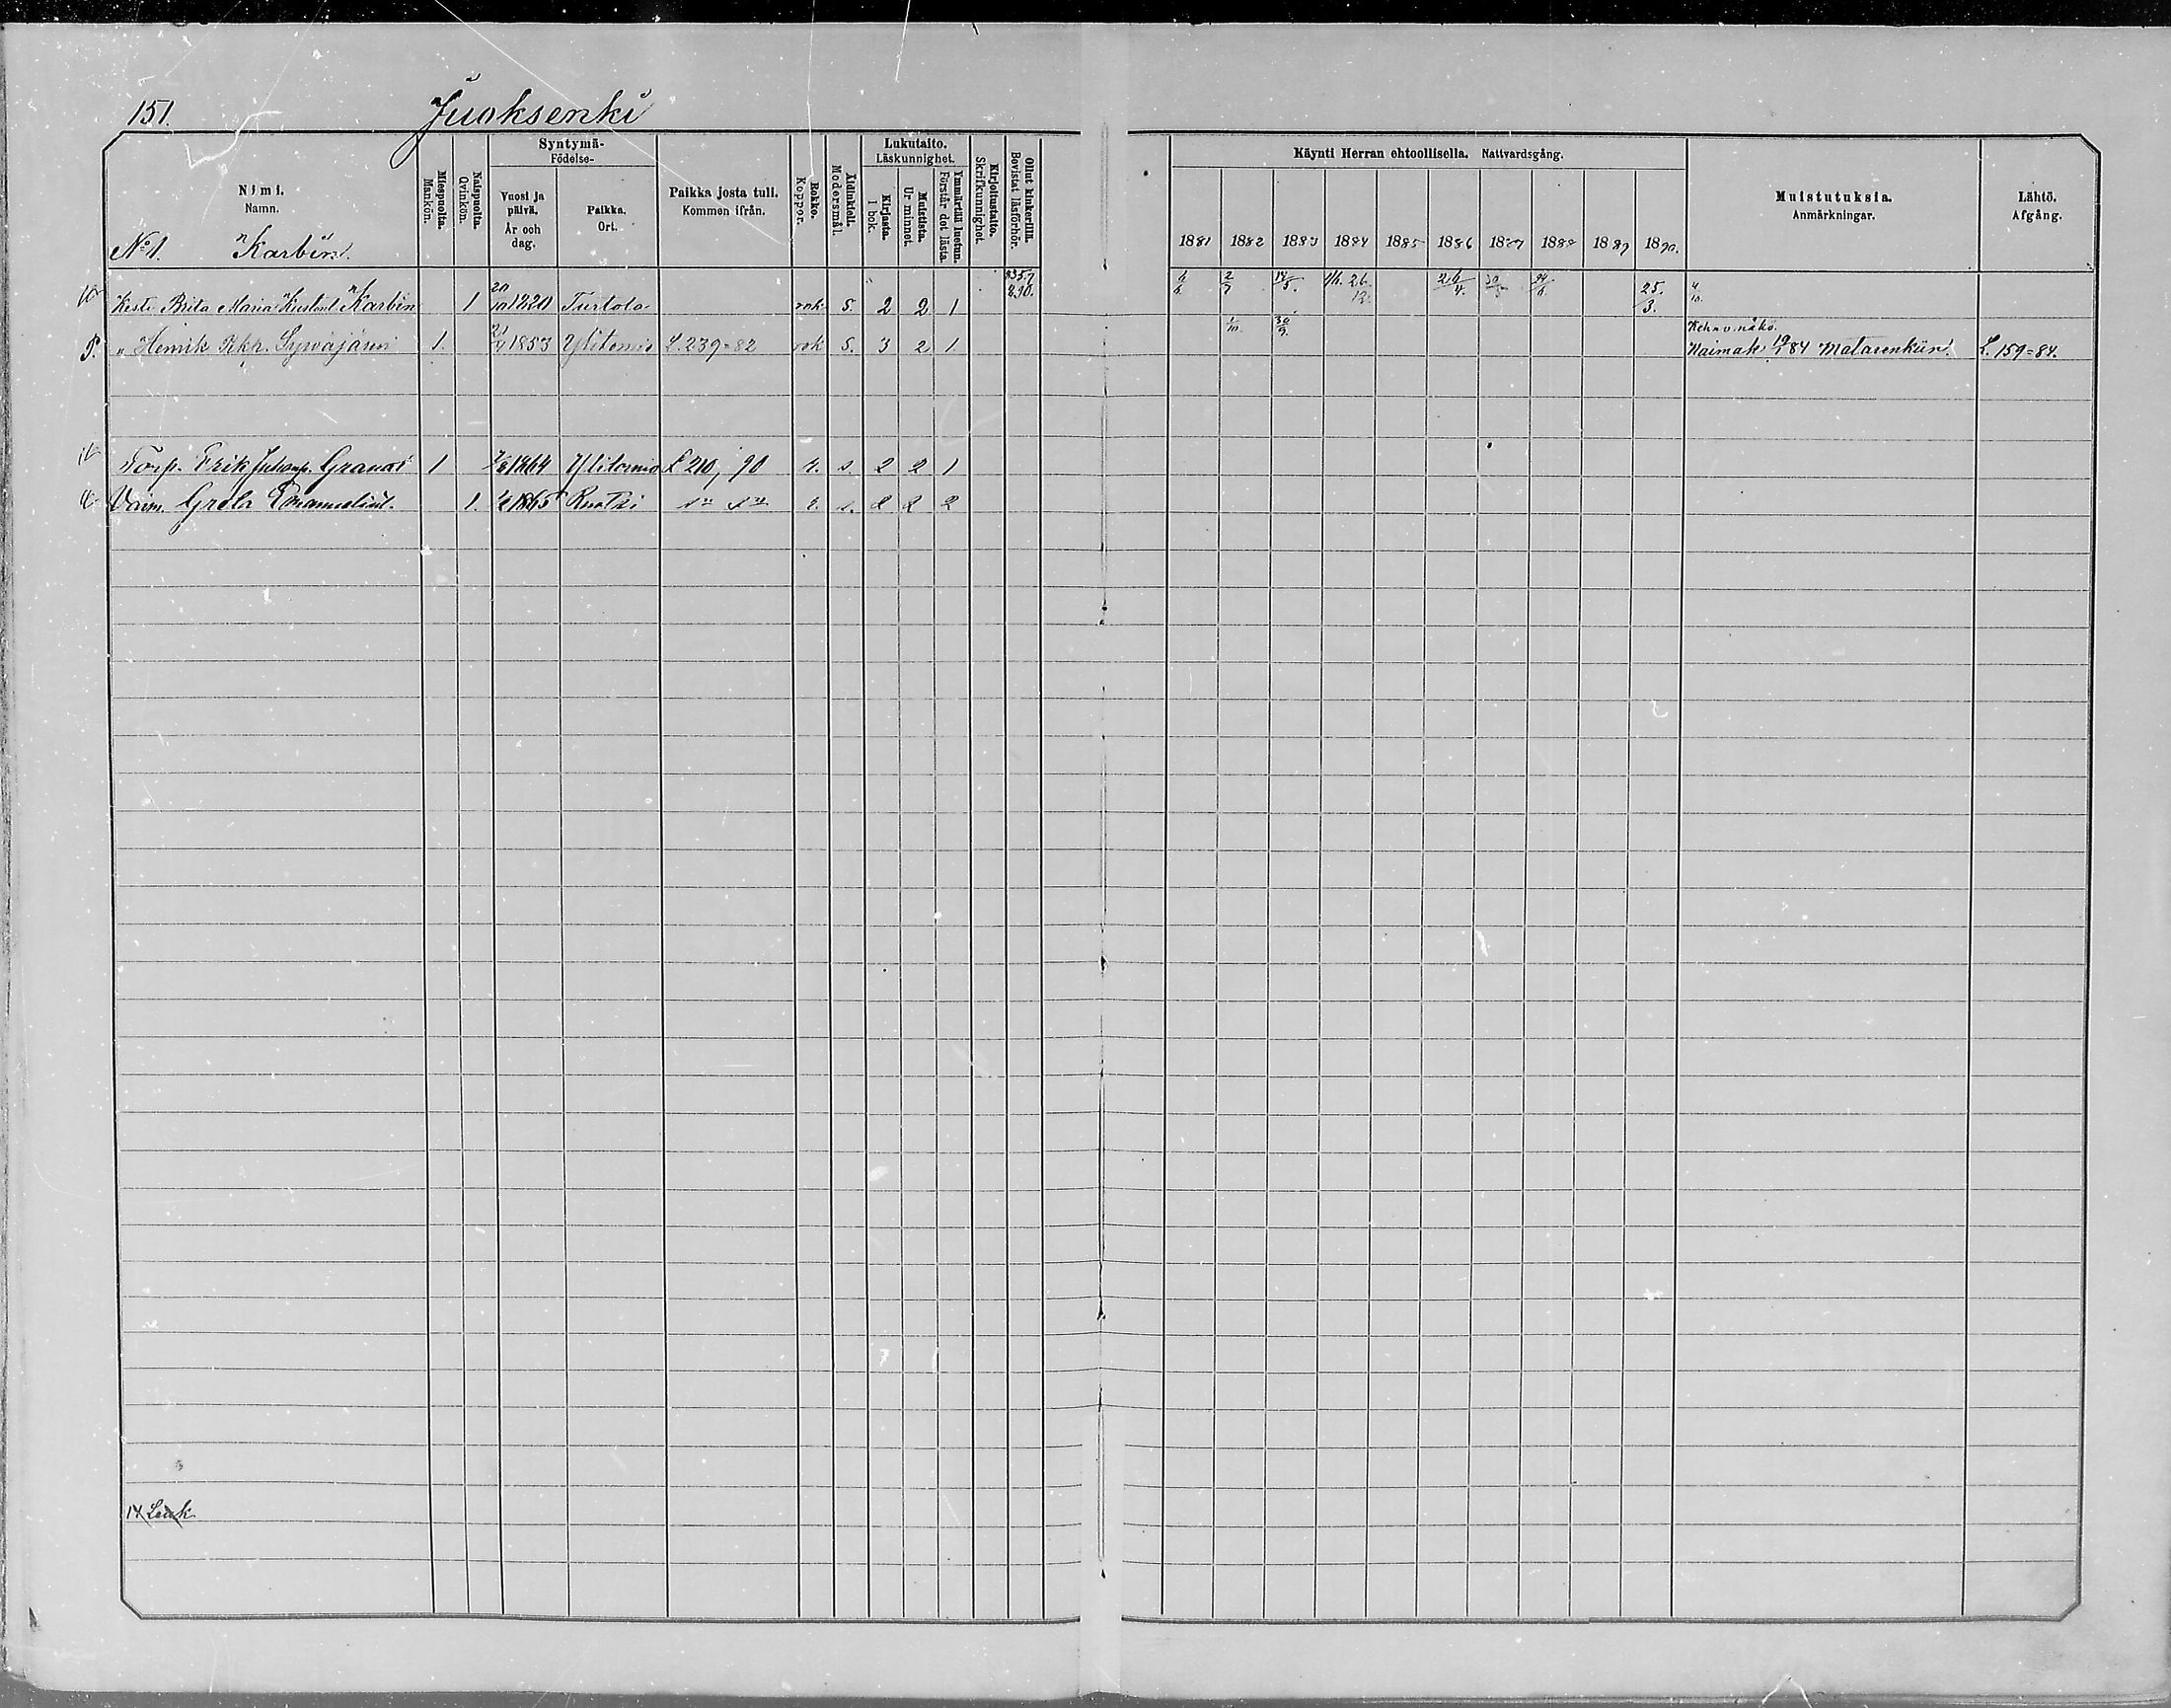 151. Juoksenki
Nimi. Namn.
Miespuolta. Mankön.
Naispuolta. Qvinkön.
Syntymä- Födelse-
Vuosi ja päivä. År och dag.
Paikka. Ort.
Paikka josta tuli. Kommen ifrån.
Rokko. Koppor.
Äidinkieli. Modersmål.
Lukutaito. Läskunnighet.
Kirjasta. I bok.
Muistista. Ur minnet.
Ymmärtää luetun. Förstår det lästa.
Kirjoitustaito. Skrifkunnighet.
Ollut kinkerillä. Bevistat läsförhör.
Käynti Herran ehtoollisella. Nattvardsgång.
1881 1882 1883 1884 1885 1886 1887 1888 1889 1890.
Muistutuksia. Anmärkningar.
Lähtö. Afgång.
No 1. Karbin.
Kesti Brita Maria Karbin 1 20/10 1820 Turtola rok 5. 2 2 1 2/7 14/5. 26/12. 26/4. 25./3.
Henrik Syväjärvi 1. 21/4 1853 Ylitornio L. 239=82 rok S. 3 2 1. 1/10. 30/9. Naimak. 84 Matarenkiin. L. 159=84.
Torp. Erik Granat 1 1864 Ylitornio L 210, 90 r. s. 2 2 1
Vaim. Greta 1. 1865 r. s. 2 2 2